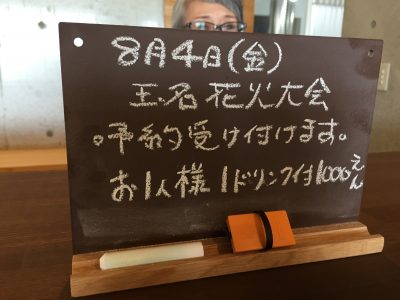 8月4日(金)
玉名花火大会
。予約受け付けます。
お1人様1ドリンク付1000えん